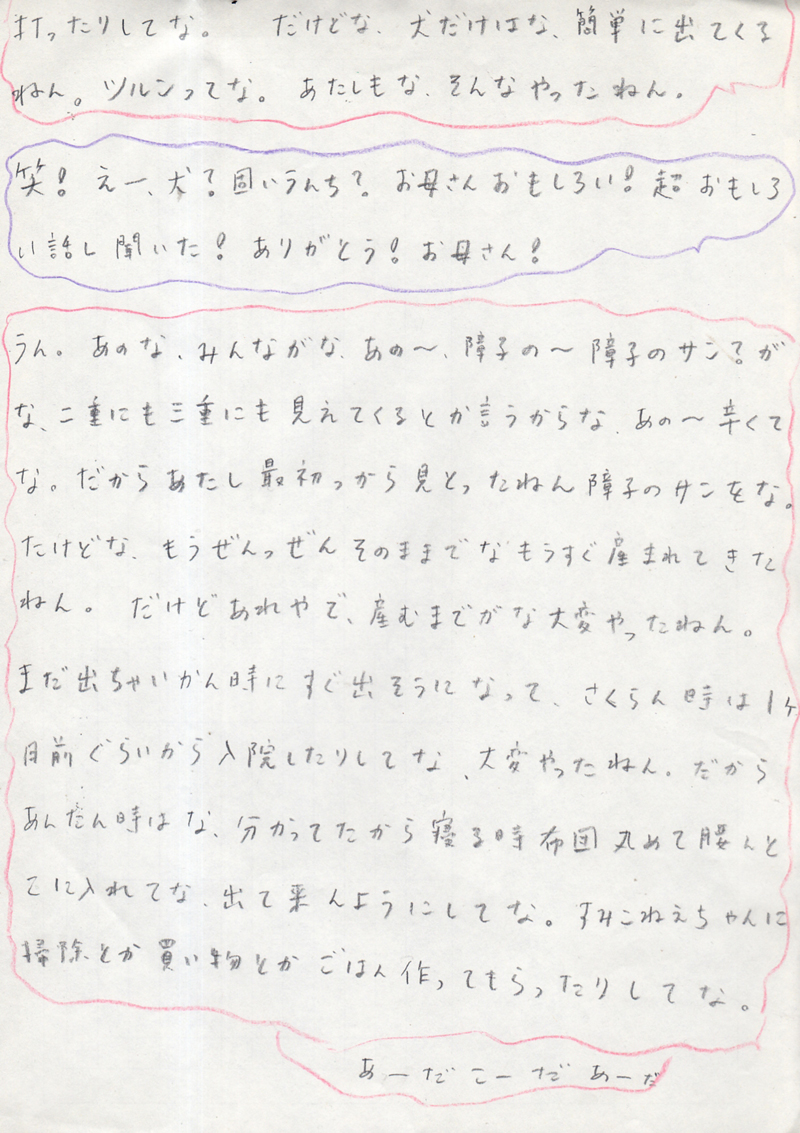 打ったりしてな。 だけどな、犬だけはな、簡単に出てくる
ねん。ツルンってな。あたしもな、そんなやったねん。
笑！えー、犬？固いうんち？お母さんおもしろい！超おもしろ
い話し聞いた！ありがとう！お母さん！
うん。あのな、みんながな、あの〜、障子の〜障子のサン？が
な、二重にも三重にも見えてくるとか言うからな、あの〜辛くて
な。だからあたし最初っから見とったねん障子のサンをな。
たけどな、もうぜんっぜんそのままでなもうすぐ産まれてきた
ねん。だけどあれやで、産むまでがな大変やったねん。
まだ出ちゃいかん時にすぐ出そうになって、さくらん時は1ヶ
月前ぐらいから入院したりしてな、大変やったねん。だから
あんたん時はな、分かってたから寝る時布団丸めて腰んと
こに入れてな、出て来んようにしてな。すみこねえちゃんに
掃除とか買い物とかごはん作ってもらったりしてな。
あーだこーだあーだ